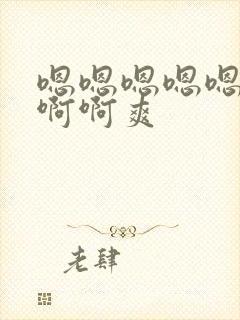 嗯嗯嗯嗯嗯
啊啊爽
老肆